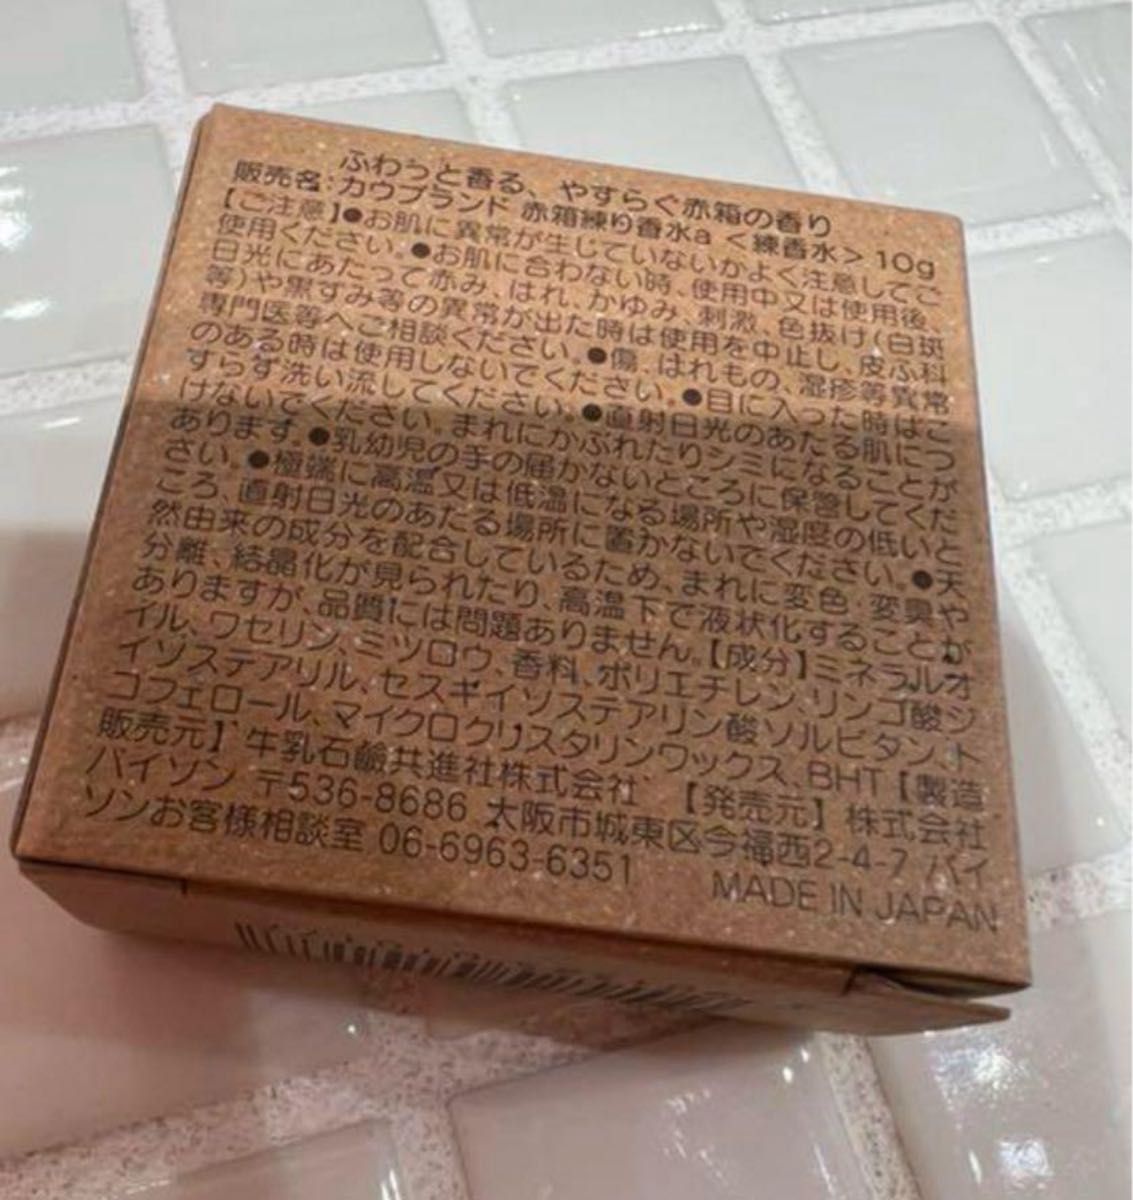 ふわっと香る、やすらぐ赤箱の香り
販売名:カウブランド 赤箱練り香水a <練香水> 10g
【ご注意】●お肌に異常が生じていないかよく注意してご
使用ください。●お肌に合わない時、使用中又は使用後、
日光にあたって赤み、はれ、かゆみ、刺激、色抜け(白斑
等)や黒ずみ等の異常が出た時は使用を中止し、皮ふ科
専門医等へご相談ください。●傷、はれもの、湿疹等異常
のある時は使用しないでください。●目に入った時はこ
すらず洗い流してください。●直射日光のあたる肌につ
けないでください。まれにかぶれたりシミになることが
あります。●乳幼児の手の届かないところに保管してくだ
さい。●極端に高温又は低温になる場所や湿度の低いと
ころ、直射日光のあたる場所に置かないでください。●天
然由来の成分を配合しているため、まれに変色・変臭や
分離、結晶化が見られたり、高温下で液状化することが
ありますが、品質には問題ありません。【成分】ミネラルオ
イル、ワセリン、ミツロウ、香料、ポリエチレン、リンゴ酸ジ
イソステアリル、セスキイソステアリン酸ソルビタン、ト
コフェロール、マイクロクリスタリンワックス、BHT【製造
販売元】牛乳石鹼共進社株式会社 【発売元】株式会社
バイソン 〒536-8686 大阪市城東区今福西2-4-7 バイ
ソンお客様相談室 06-6963-6351
MADE IN JAPAN